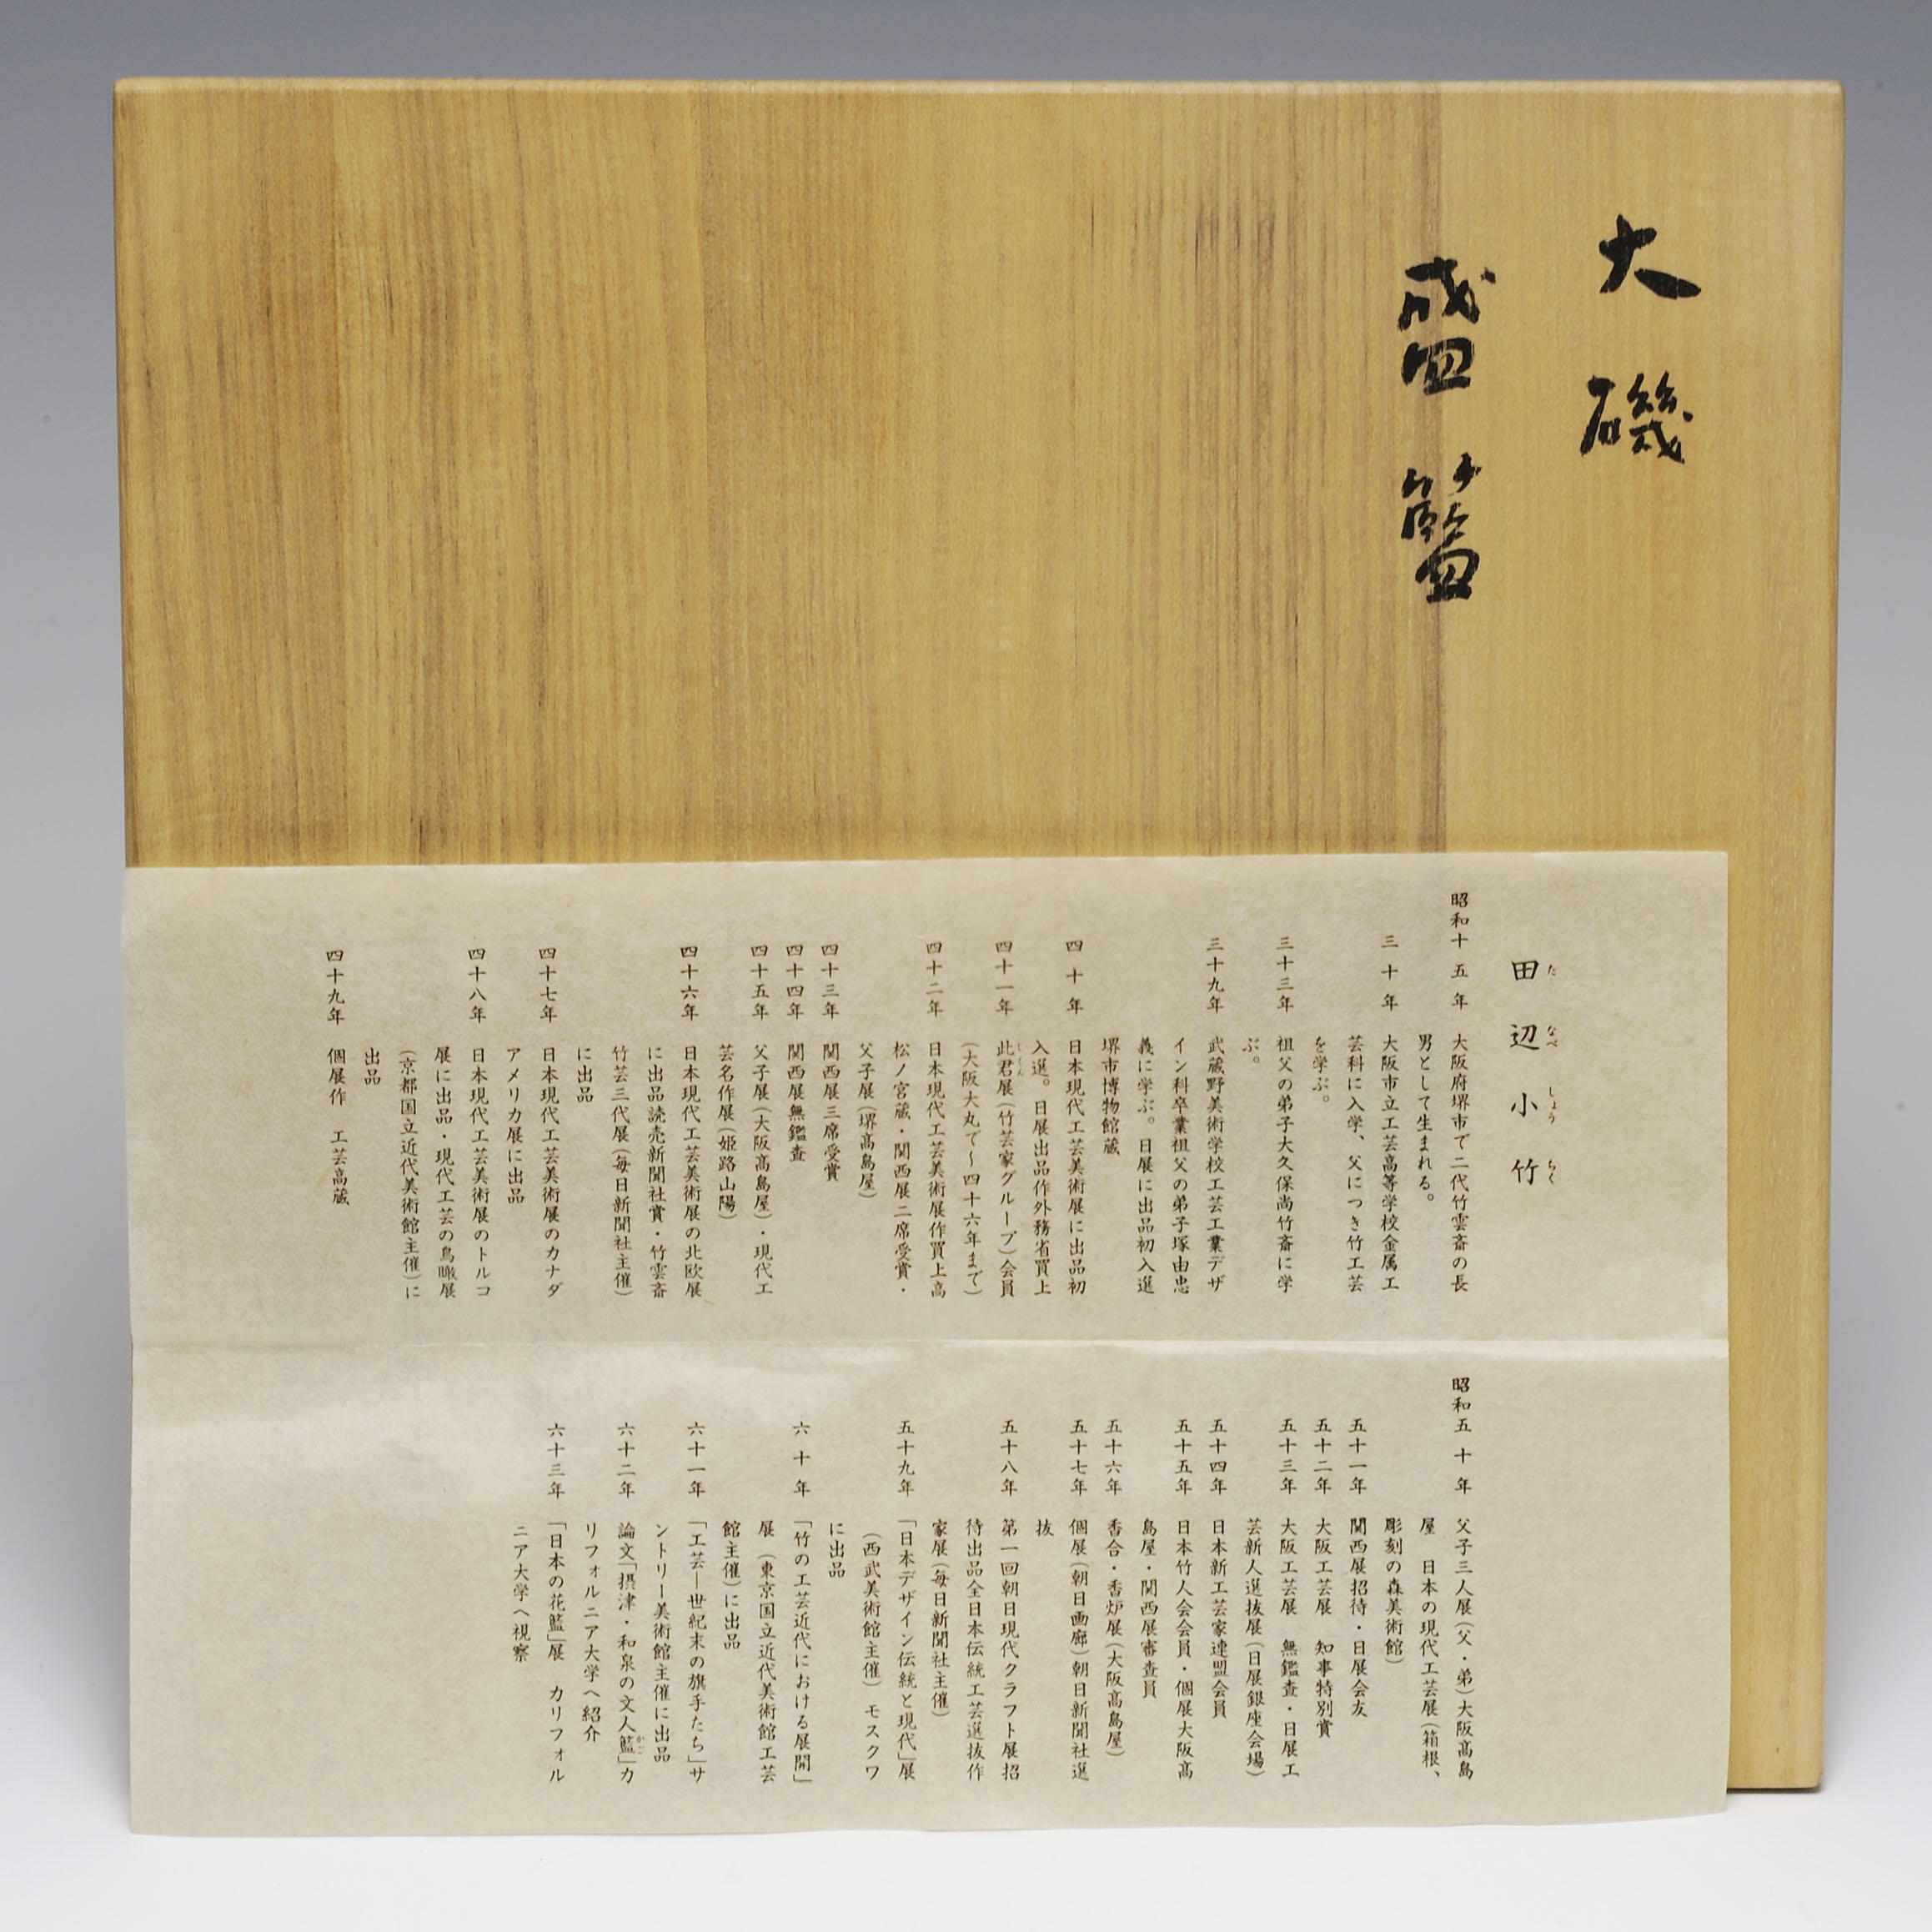 大磯
盛籃
田辺小竹
たなべしょうちく
昭和十五年 大阪府堺市で二代竹雲斎の長
男として生まれる。
三十年 大阪市立工芸高等学校金属工
芸科に入学、父につき竹工芸
を学ぶ。
三十三年 祖父の弟子大久保尚竹斎に学
ぶ。
三十九年 武蔵野美術学校工芸工業デザ
イン科卒業祖父の弟子塚由忠
義に学ぶ。日展に出品初入選
堺市博物館蔵
四十年 日本現代工芸美術展に出品初
入選。日展出品作外務省買上
四十一年 此君展(竹芸家グループ)会員
しくん
(大阪大丸で〜四十六年まで)
四十二年 日本現代工芸美術展作買上高
松ノ宮蔵・関西展二席受賞・
父子展(堺髙島屋)
四十三年 関西展三席受賞
四十四年 関西展無鑑査
四十五年 父子展(大阪髙島屋)・現代工
芸名作展(姫路山陽)
四十六年 日本現代工芸美術展の北欧展
に出品読売新聞社賞・竹雲斎
竹芸三代展(毎日新聞社主催)
に出品
四十七年 日本現代工芸美術展のカナダ
アメリカ展に出品
四十八年 日本現代工芸美術展のトルコ
展に出品・現代工芸の鳥瞰展
(京都国立近代美術館主催)に
出品
四十九年 個展作 工芸高蔵
昭和五十年 父子三人展(父・弟)大阪髙島
屋 日本の現代工芸展(箱根、
彫刻の森美術館)
五十一年 関西展招待・日展会友
五十二年 大阪工芸展 知事特別賞
五十三年 大阪工芸展 無鑑査・日展工
芸新人選抜展(日展銀座会場)
五十四年 日本新工芸家連盟会員
五十五年 日本竹人会会員・個展大阪髙
島屋・関西展審査員
五十六年 香合・香炉展(大阪髙島屋)
五十七年 個展(朝日画廊)朝日新聞社選
抜
五十八年 第一回朝日現代クラフト展招
待出品全日本伝統工芸選抜作
家展(毎日新聞社主催)
五十九年 「日本デザイン伝統と現代」展
(西武美術館主催)モスクワ
に出品
六十年 「竹の工芸近代における展開」
展(東京国立近代美術館工芸
館主催)に出品
六十一年 「工芸―世紀末の旗手たち」サ
ントリー美術館主催に出品
六十二年 論文「摂津・和泉の文人籃」カ
かご
リフォルニア大学へ紹介
六十三年 「日本の花籃」展 カリフォル
ニア大学へ視察